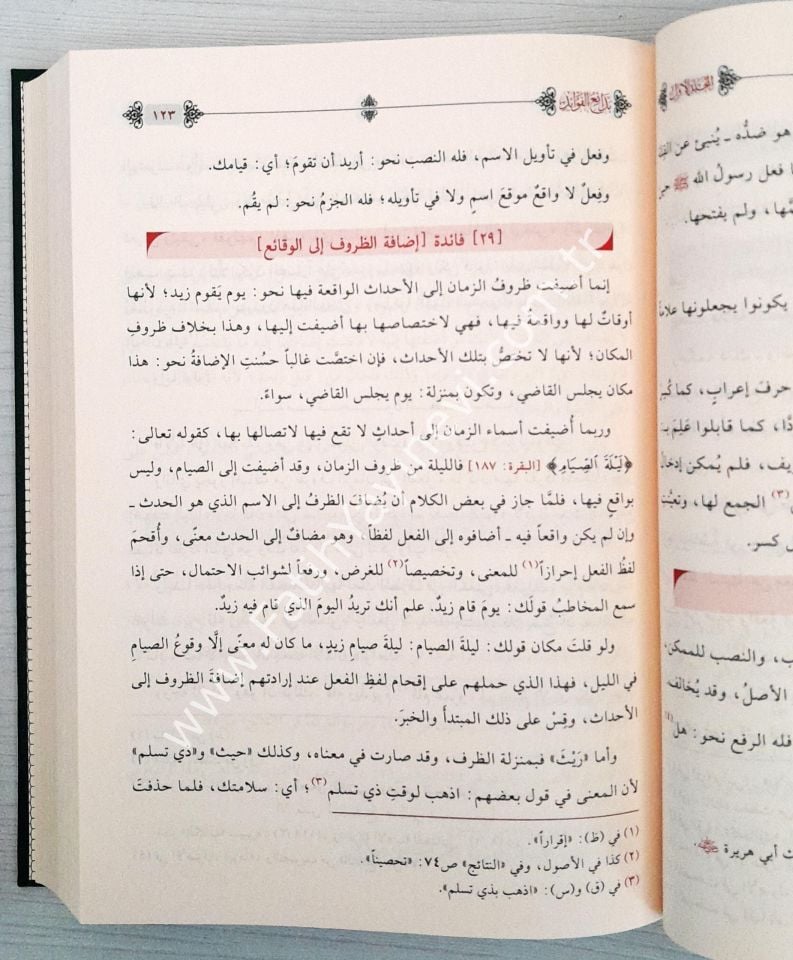 بدائع الفوائد
١٢٣
وفعل في تأويل الاسم، فله النصب نحو: أريد أن تقومَ؛ أي: قيامك.
وفِعلٌ لا واقعٌ موقعَ اسمٍ ولا في تأويله؛ فله الجزمُ نحو: لم يقُم.
[٢٩] فائدة [إضافة الظروف إلى الوقائع]
إنما أُضيفت ظروفُ الزمان إلى الأحداث الواقعة فيها نحو: يوم يَقوم زيد؛ لأنها
أوقاتٌ لها وواقعةٌ فيها، فهي لاختصاصها بها أضيفت إليها، وهذا بخلاف ظروفِ
المكان؛ لأنها لا تختصُّ بتلك الأحداث، فإن اختصَّت غالباً حسُنتِ الإضافةُ نحو: هذا
مكان يجلس القاضي، وتكون بمنزلة: يوم يجلس القاضي، سواءً.
وربما أُضيفت أسماء الزمان إلى أحداثٍ لا تقع فيها لاتصالها بها، كقوله تعالى:
﴿لَيْلَةَ ٱلصِّيَامِ﴾ [البقرة: ١٨٧] فالليلة من ظروف الزمان، وقد أضيفت إلى الصيام، وليس
بواقع فيها، فلمَّا جاز في بعض الكلام أن يُضافَ الظرفُ إلى الاسم الذي هو الحدث ـ
وإن لم يكن واقعاً فيه ـ أضافوه إلى الفعل لفظاً، وهو مضافٌ إلى الحدث معنًى، وأُقحمَ
لفظُ الفعل إحرازاً(١) للمعنى، وتخصيصاً(٢) للغرض، ورفعاً لشوائب الاحتمال، حتى إذا
سمع المخاطبُ قولَك: يومَ قام زيدٌ. علم أنك تريدُ اليومَ الذي قام فيه زيدٌ.
ولو قلتَ مكان قولك: ليلةَ الصيام: ليلةَ صيامِ زيدٍ، ما كان له معنًى إلَّا وقوعُ الصيامِ
في الليل، فهذا الذي حملهم على إقحام لفظِ الفعل عند إرادتهم إضافةَ الظروف إلى
الأحداث، وقِسْ على ذلك المبتدأَ والخبرَ.
وأما «رَيْثَ» فبمنزلة الظرف، وقد صارت في معناه، وكذلك «حيث» و«ذي تسلم»
لأن المعنى في قول بعضهم: اذهب لوقتِ ذي تسلم(٣)؛ أي: سلامتك، فلما حذفتَ
(١) في (ظ): «إقراراً».
(٢) كذا في الأصول، وفي «النتائج» ص٧٤: «تحصيناً».
(٣) في (ق) و(س): «اذهب بذي تسلم».
المجلد الأول
هو ضدُّه ـ يُنبئ عن
فعل رسولُ الله ﷺ
ولم يفتحها.
يكونوا يجعلونها
حرفَ إعرابٍ،
كما قابلوا
فلم يُمكن
(٣) الجمع لها،
كسر.
والنصب للممكن،
الأصلُ، وقد يُخالف
فله الرفع نحو: هل
أبي هريرة
www.FatihYayinevi.com.tr